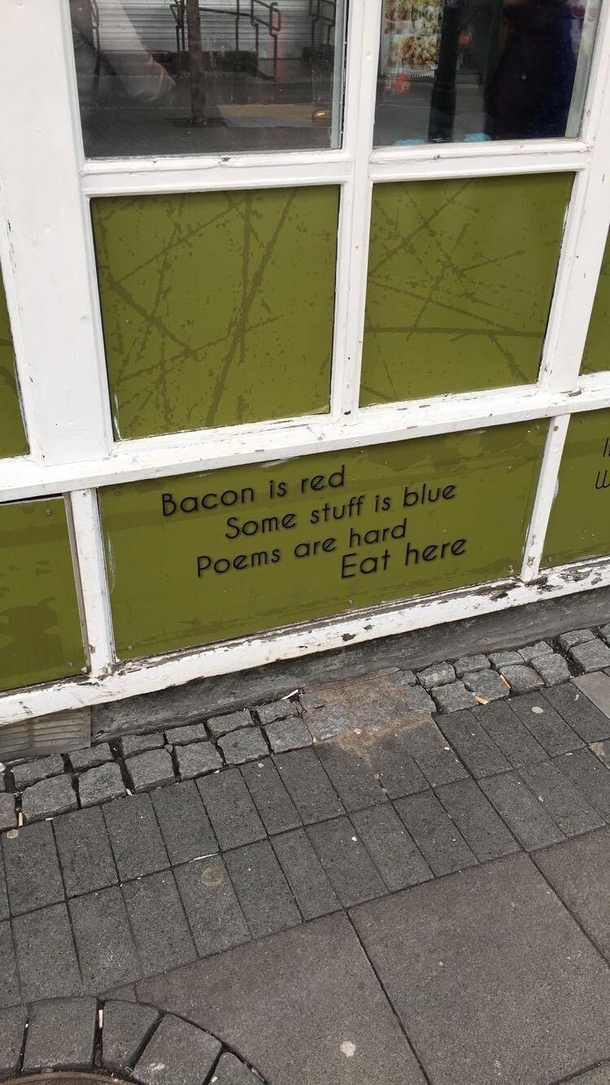 Bacon is red
Some stuff is blue
Poems are hard
Eat here